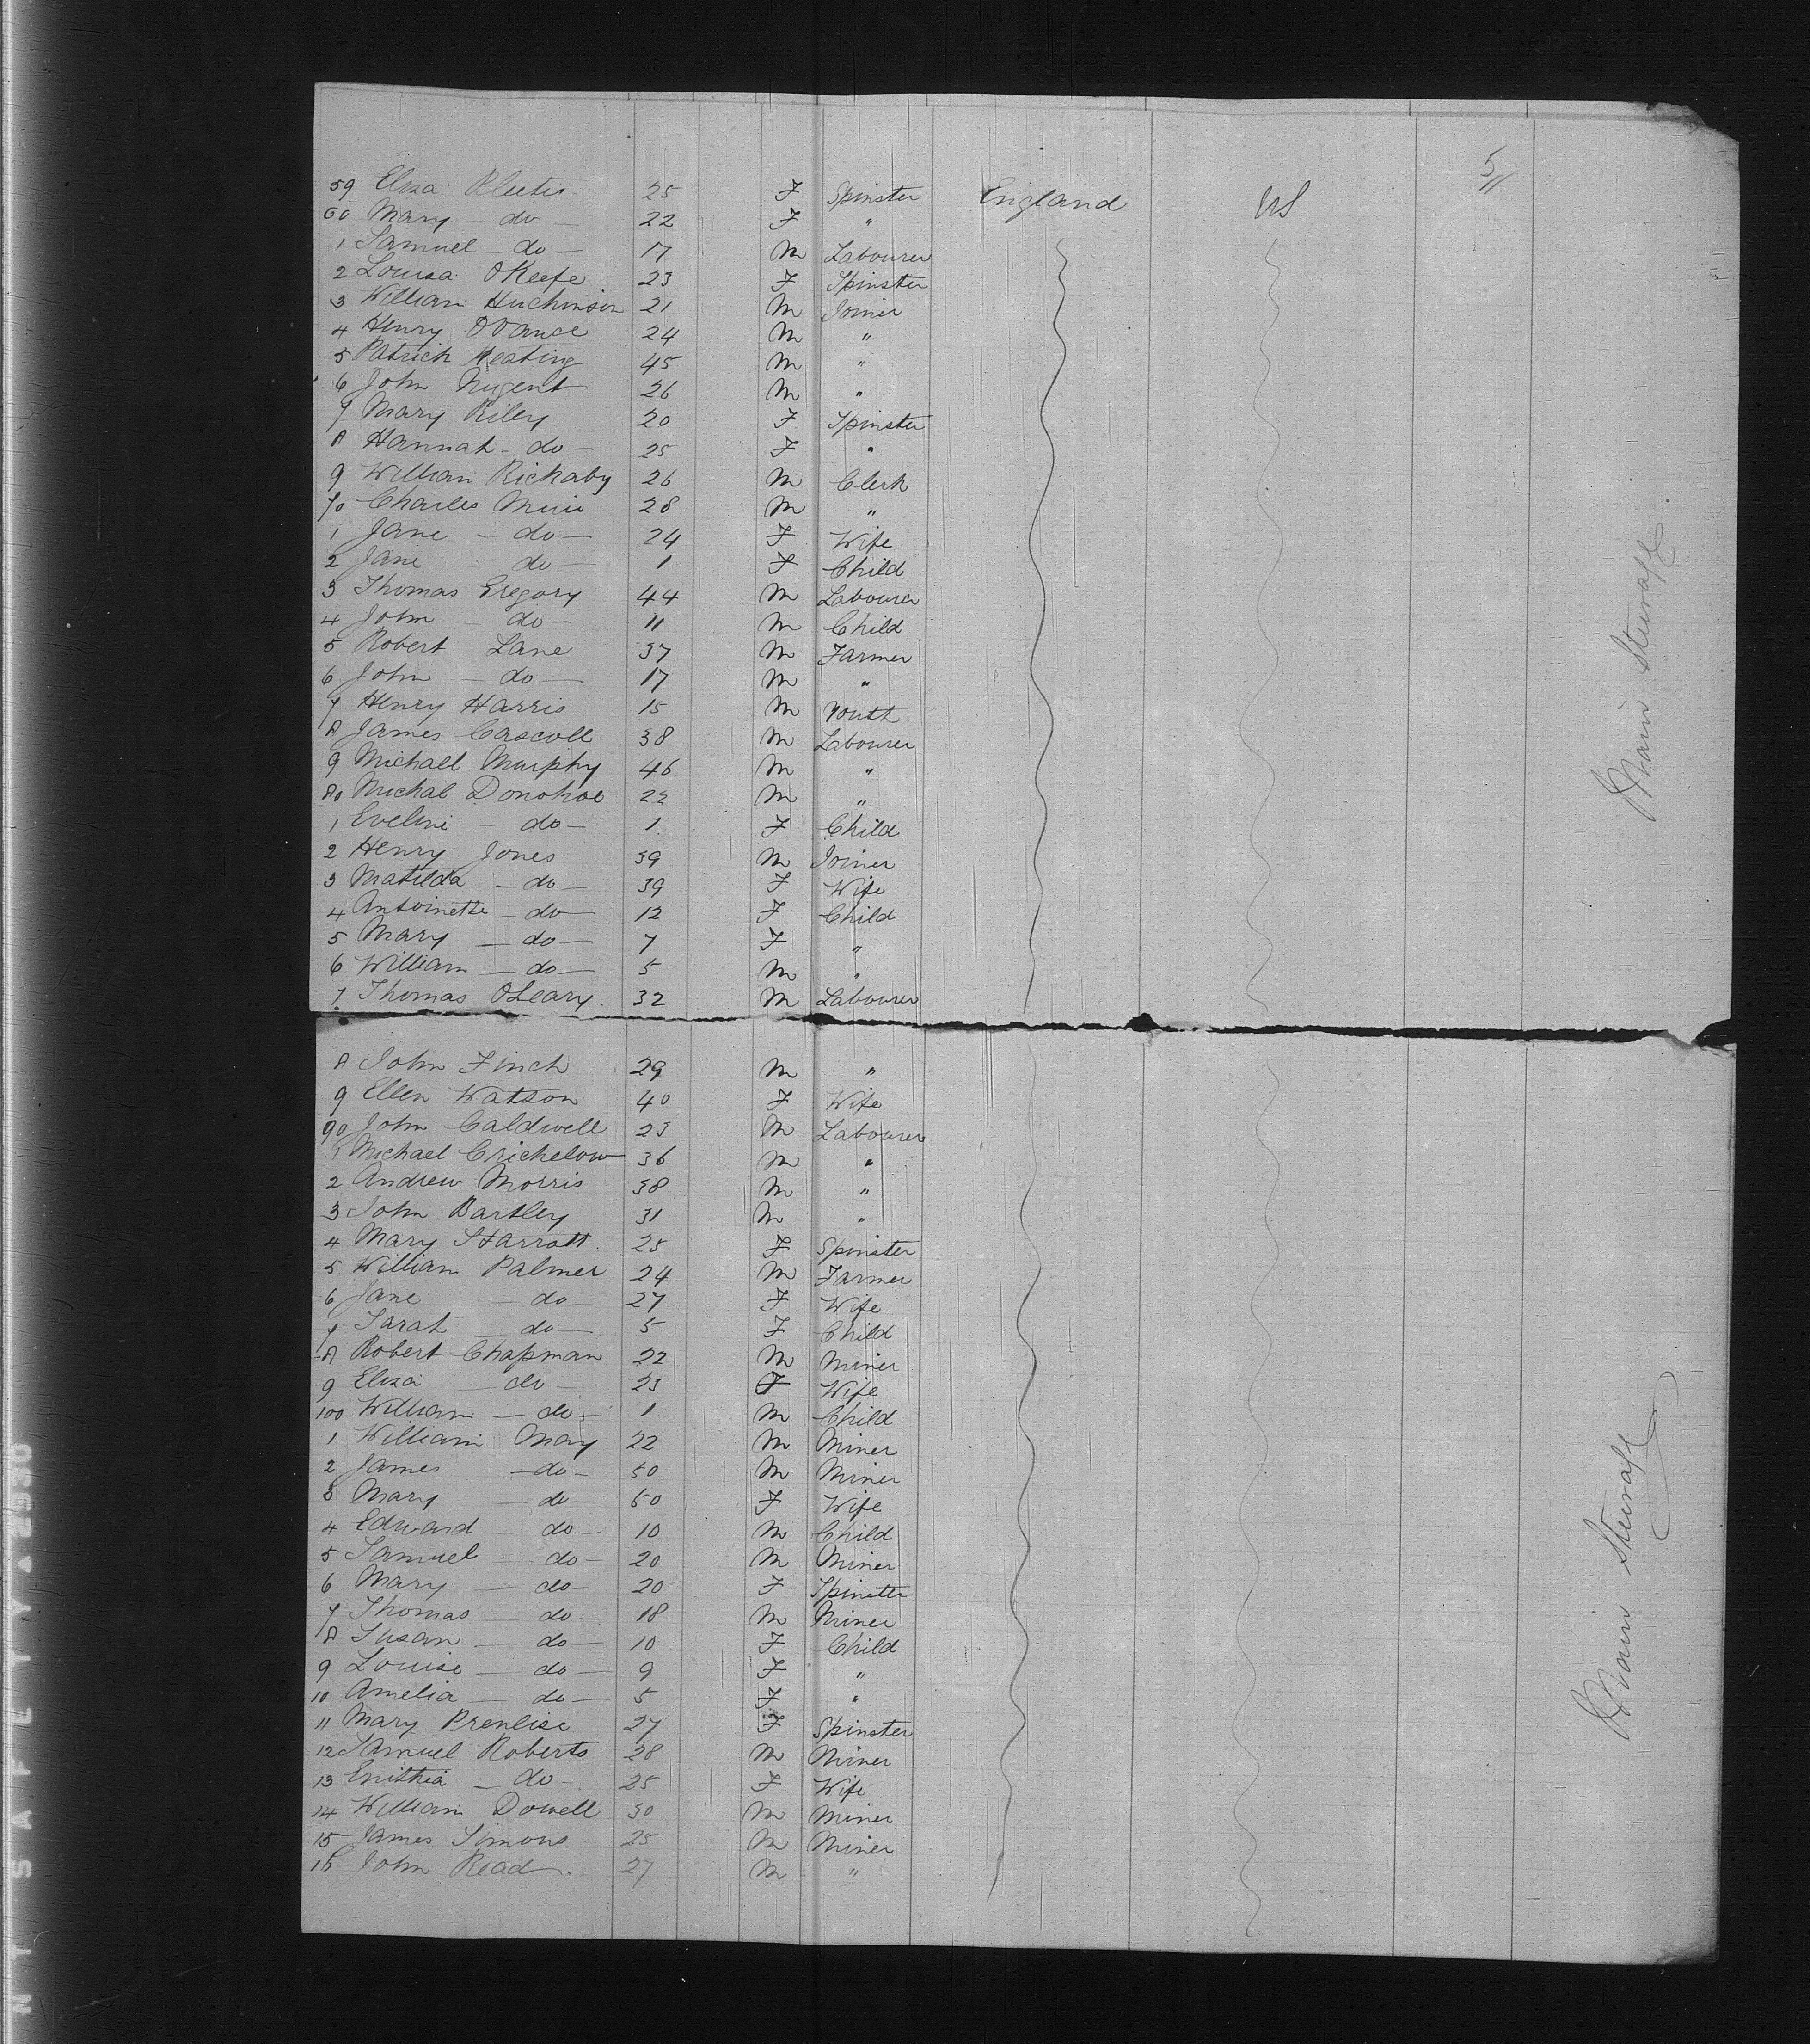 5
59 Eliza 25 F Spinster England US
60 Mary - do - 22 F "
1 Samuel - do - 17 M Labourer
2 Louisa OKeefe 23 F Spinster
3 William Huchinson 21 M Joiner
4 Henry 24 M "
5 Patrick Keating 45 M "
6 John Nugent 26 M "
7 Mary Riley 20 F Spinster
8 Hannah - do - 25 F "
9 William Rickaby 26 M Clerk
70 Charles Muir 28 M "
1 Jane - do - 24 F Wife
2 Jane do - 1 F Child
3 Thomas Gregory 44 M Labourer
4 John - do - 11 M Child
5 Robert Lane 37 M Farmer
6 John - do - 17 M "
7 Henry Harris 15 M Youth
8 James Cascoll 38 M Labourer
9 Michael Murphy 46 M "
80 Michal Donohoe 22 M "
1 Eveline - do - 1 F Child
2 Henry Jones 39 M Joiner
3 Matilda - do - 39 F Wife
4 Antoinette - do - 12 F Child
5 Mary - do - 7 F "
6 William - do - 5 M "
7 Thomas OLeary 32 M Labourer
Main Steerage
8 John Finch 29 M "
9 Ellen Watson 40 F Wife
90 John Caldwell 23 M Labourer
1 Michael Crichelow 36 M "
2 Andrew Morris 38 M "
3 John Bartley 31 M "
4 Mary Starrott 25 F Spinster
5 William Palmer 24 M Farmer
6 Jane - do - 27 F Wife
7 Sarah - do - 5 F Child
8 Robert Chapman 22 M Miner
9 Eliza - do - 23 F Wife
100 William - do - 1 M Child
1 William May 22 M Miner
2 James - do - 50 M Miner
3 Mary - do - 50 F Wife
4 Edward - do - 10 M Child
5 Samuel - do - 20 M Miner
6 Mary - do - 20 F Spinster
7 Thomas - do - 18 M Miner
8 Susan - do - 10 F Child
9 Louise - do - 9 F "
10 Amelia - do - 5 F "
11 Mary Prenlise 27 F Spinster
12 Samuel Roberts 28 M Miner
13 - do - 25 F Wife
14 William Dowell 30 M Miner
15 James Simons 25 M Miner
16 John Read 27 M "
Main Steerage